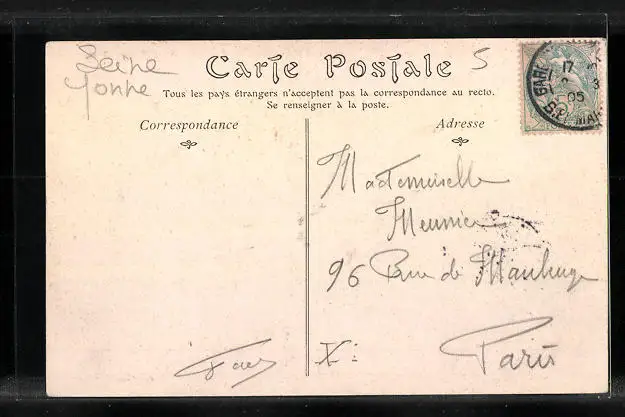 Seine
Yonne
Carte Postale
5
Tous les pays étrangers n'acceptent pas la correspondance au recto.
Se renseigner à la poste.
Correspondance
Adresse
GARE
17
05
Mademoiselle
Meunier
96 Rue de Maubeuge
X:
Paris